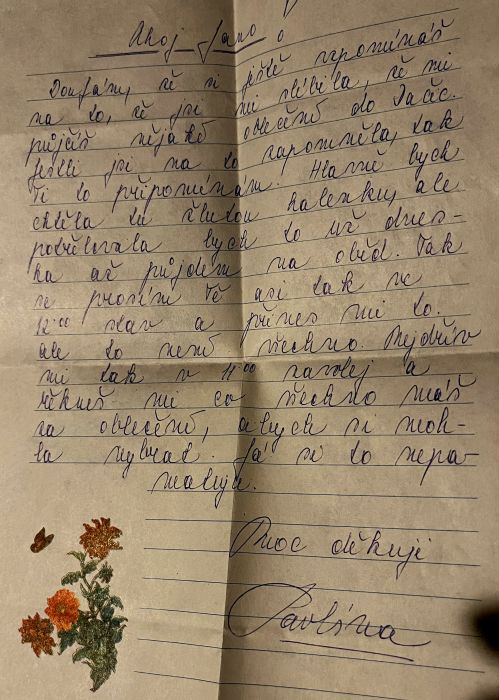 Ahoj Jano,
Doufám, že si ještě vzpomínáš
na to, že jsi mi slíbila, že mi
půjčíš nějaké oblečení do Dačic.
Jestli jsi na to zapomněla, tak
Ti to připomínám. Hlavně bych
chtěla tu žlutou halenku, ale
potřebovala bych to už dnes-
ka až půjdem na oběd. Tak
se prosím Tě asi tak ve
12:00 stav a přines mi to.
ale to není všechno. Nejdřív
mi tak v 11:00 zavolej a
řekneš mi co všechno máš
za oblečení, abych si moh-
la vybrat. Já si to nepa-
matuju.
Moc děkuji
Pavlína